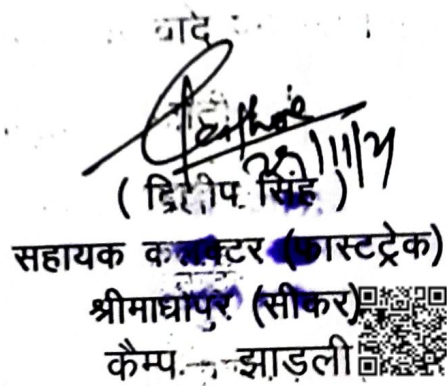 ( दिलीप सिंह )
सहायक कलक्टर (फास्टट्रेक)
श्रीमाधोपुर (सीकर)
कैम्प - झाड़ली